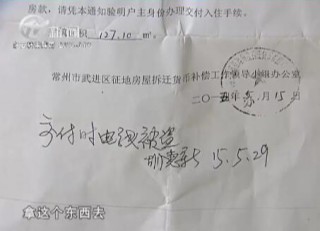 房款，请凭本通知验明户主身份办理交付入住手续。
127.10 m².
常州市武进区征地房屋拆迁货币补偿工作领导小组办公室
二〇一五年 5 月 15 日
交付时电线被盗
15.5.29
拿这个东西去